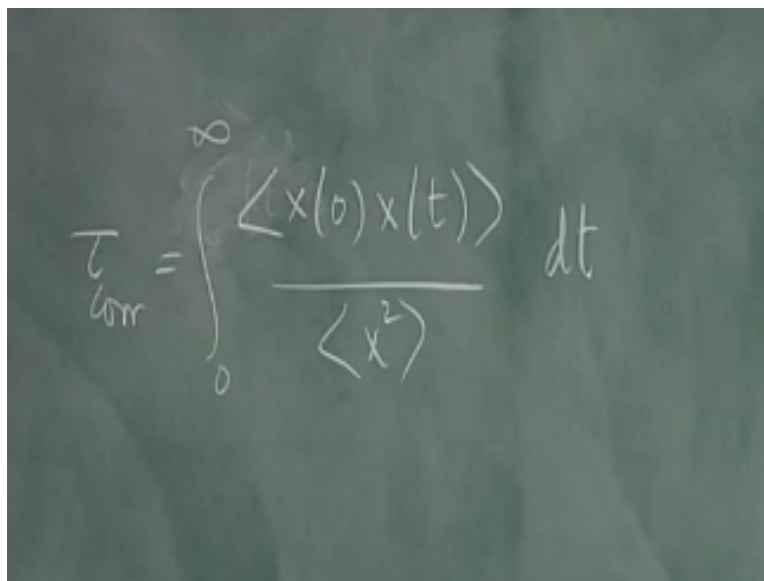 τ_corr = ∫_0^∞ ⟨x(0)x(t)⟩ / ⟨x²⟩ dt